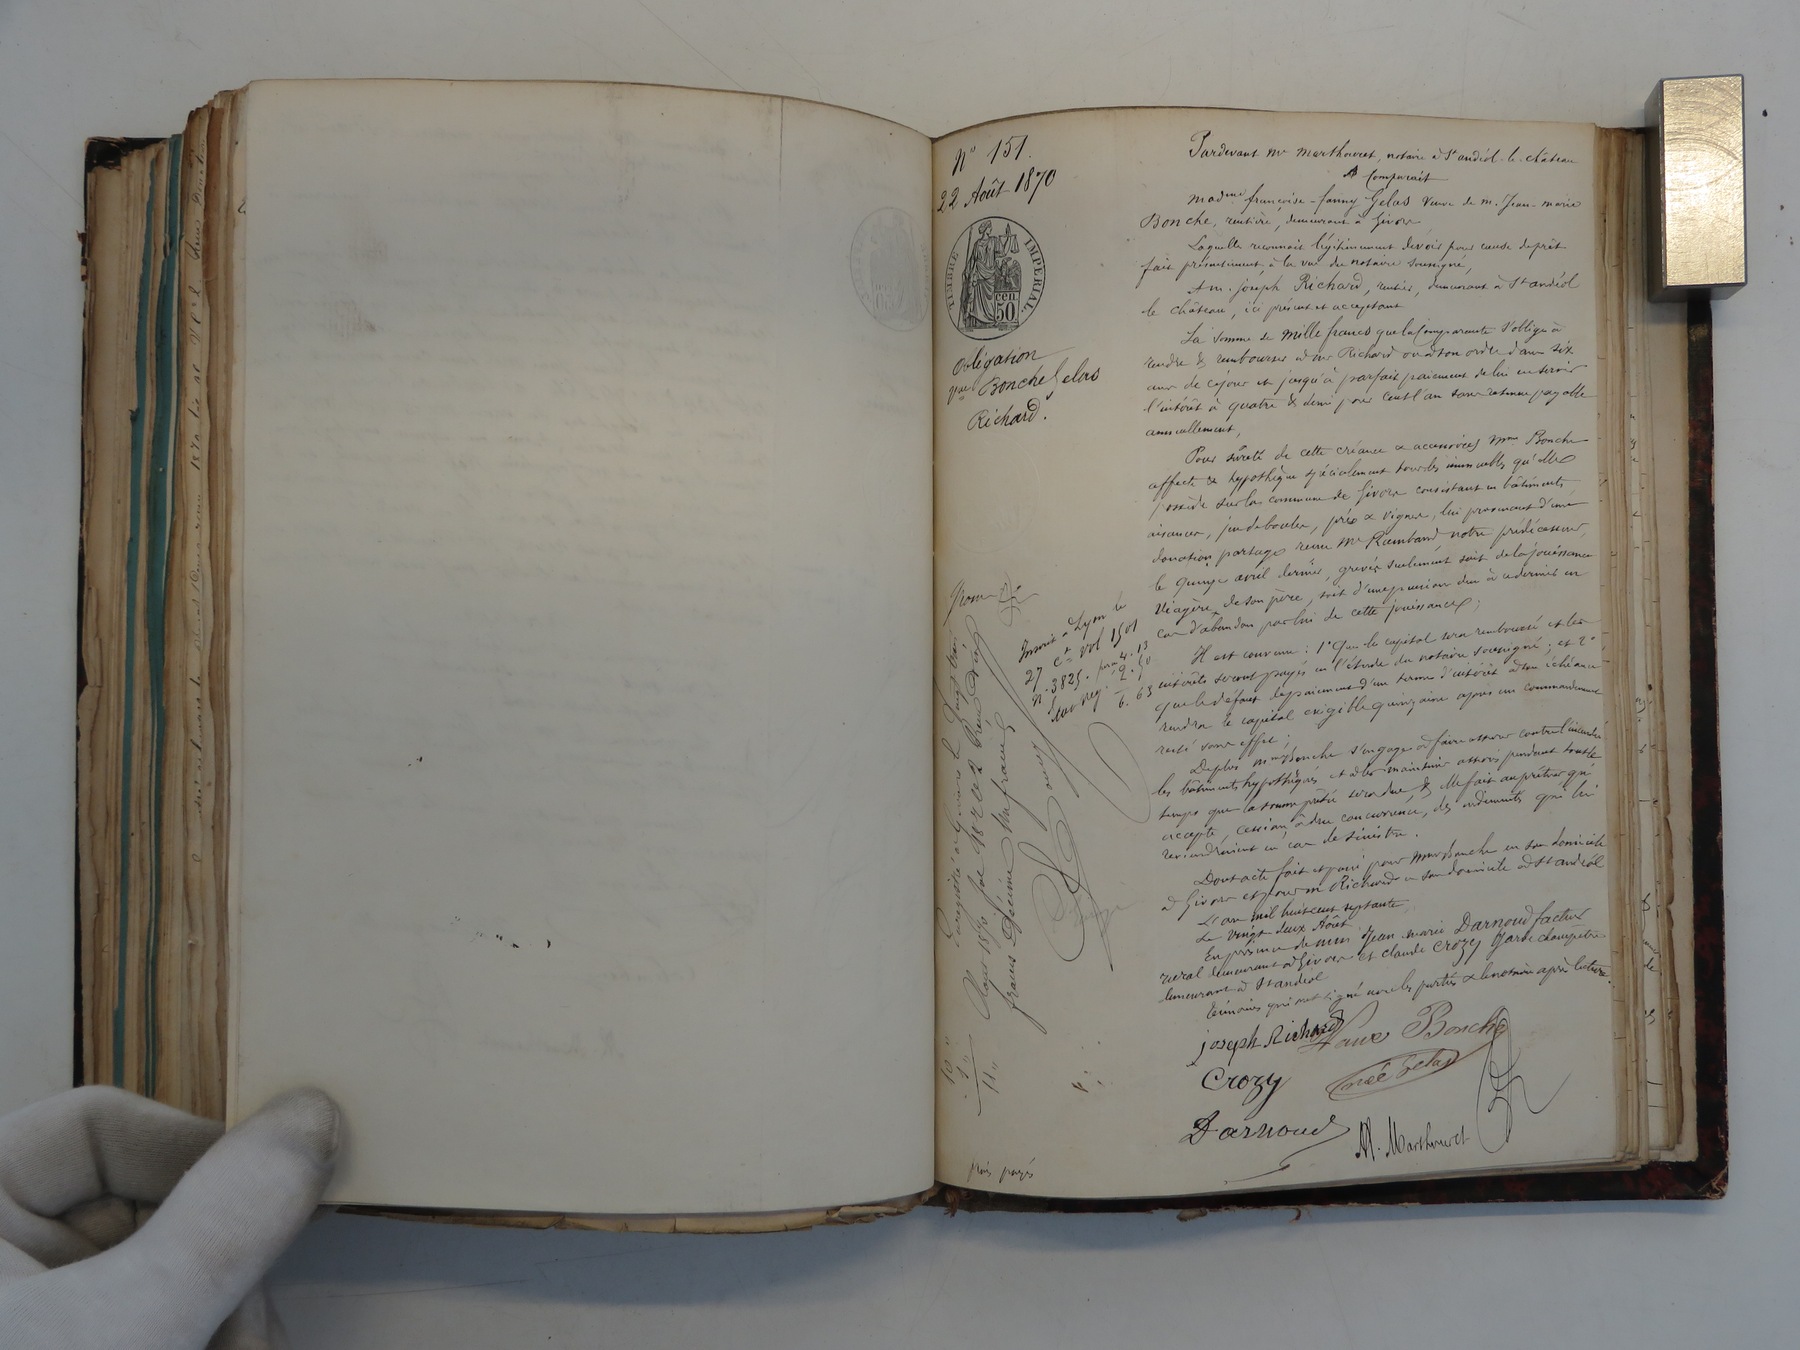 N° 151.
22 Août 1870
TIMBRE IMPÉRIAL
50 cen
Obligation
Vve Bonche Gelas
Richard.
Pardevant Me Marthouret, notaire à St andéol-le-château
A Comparait
Madme françoise-fanny Gelas veuve de m. Jean-marie
Bonche, rentière, demeurant à Givors
Laquelle reconnait légitimement devoir pour cause de prêt
fait présentement, à la vue du notaire soussigné,
A m. Joseph Richard, rentier, demeurant à St andéol
le château, ici présent et acceptant
La somme de mille francs que la Comparante s'oblige à
rendre & rembourser à mr Richard ou à son ordre dans six
ans de ce jour et jusqu'à parfait paiement de lui en servir
l'intérêt à quatre & demi pour cent l'an sans retenue payable
annuellement,
Pour sûreté de cette créance & accessoires mme Bonche
affecte & hypothèque spécialement tous les immeubles qu'elle
possède sur la commune de Givors consistant en bâtiments
aisances, jeu de boules, prés & vignes, lui provenant d'une
donation partage reçue Me Rambaud notre prédécesseur,
le quinze avril dernier, grevés seulement soit de la jouissance
viagère de son père, soit d'une pension due à ce dernier en
cas d'abandon par lui de cette jouissance;
Il est convenu: 1° Que le capital sera remboursé et les
intérêts seront payés en l'étude du notaire soussigné; et 2°
que le défaut de paiement d'un terme d'intérêt à son échéance
rendra le capital exigible quinzaine après un commandement
resté sans effet;
De plus mme Bonche s'engage à faire assurer contre l'incendie
les bâtiments hypothéqués et à les maintenir assurés pendant tout le
temps que la somme prêtée sera due, & elle fait au prêteur qui
accepte, cession, à due concurrence, des indemnités qui lui
reviendraient en cas de sinistre.
Dont acte fait et passé pour mme Bonche en son domicile
à Givors et pour m Richard en son domicile à St andéol
L'an mil huit cent septante
Le vingt deux Août
En présence de mm Jean-marie Darnoud facteur
rural demeurant à Givors et claude Crozy garde champêtre
demeurant à St andéol
témoins qui ont signé avec les parties & le notaire après lecture.
joseph Richard Veuve Bonche
née Gelas
Crozy
Darnoud
M. Marthouret
Inscrit à Lyon le
27 ct vol 1501
n° 3825.
4.13
2.50
6.63
Enregistré à Givors le vingt trois
Août 1870
francs
10 "
1 "
11 "
frais payés